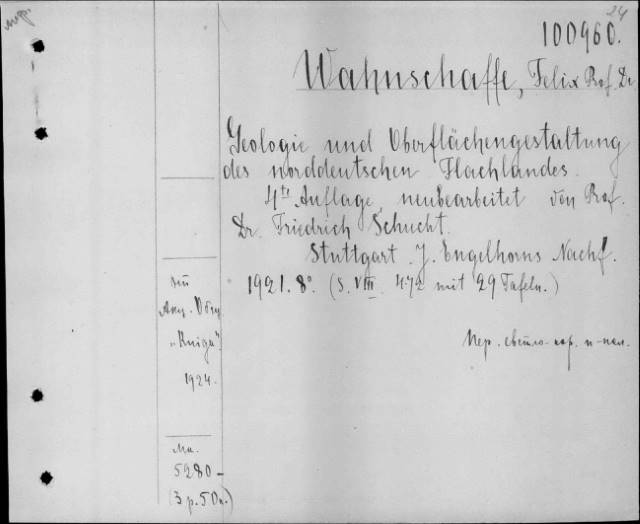 24
100960.
Wahnschaffe, Felix Prof. Dr
Geologie und Oberflächengestaltung
des norddeutschen Flachlandes.
4te Auflage, neubearbeitet von Prof.
Dr. Friedrich Schucht.
Stuttgart. J. Engelhorns Nachf.
1921. 8°. (S. VIII. 472 mit 29 Tafeln.)
Акц. Общ.
„Книга“
1924.
Пер. светло-кор. п-кол.
5280-
(3 р. 50 к.)